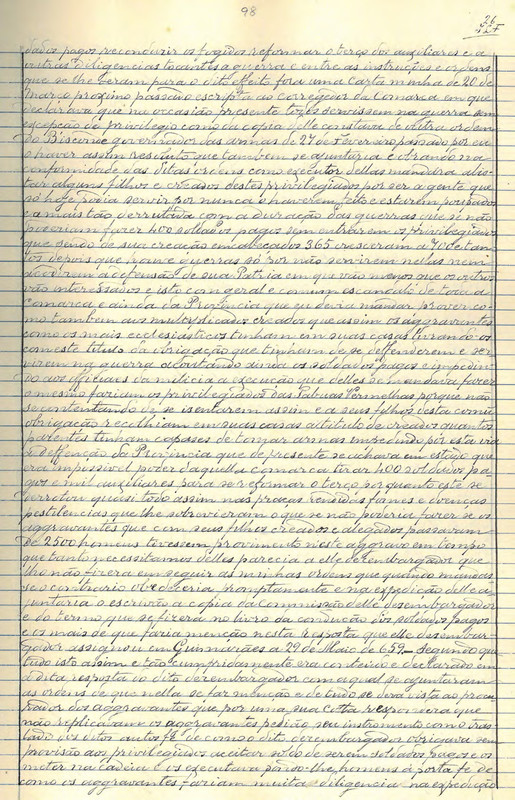 98
26
427
dados pagos, reconduzir os fogidos, reformar o terço dos auxiliares e a
outras diligencias tocantes a guerra e entre as instruções e ordens
que se lhe deram para o dito effeito fora uma carta minha de 20 de
março proximo passado escripta ao corregedor da Comarca em que
declarava que na occasião presente todos servissem na guerra sem
excepção de privilegio como da copia delle constava de outra ordem
do Bisconde governador das armas de 27 de Fevereiro passado por eu
o haver assim resoluto que tambem se ajuntaria e obrando na
conformidade das ditas ordens como executor dellas mandára alis-
tar alguns filhos e creados destes privilegiados por ser a gente que
só hoje podia servir por nunca o haverem feito e estarem poupados
e a mais tão derrotada com a duração das guerras que se não
poderiam fazer 400 soldados pagos sem entrarem os privilegiados
que sendo de sua creação encabeçados 365 cresceram a 70 de tan-
tos depois que houve guerras só por não servirem nellas nem
acodiram á defensão de sua Patria em que vão menos que os outros
vão interessados e isto com geral e comum escandalo de toda a
comarca e ainda da Provincia que eu devia mandar prover co-
mo tambem aos multiplicados creados que assim os aggravantes
como os mais ecclesiasticos tinham em suas casas livrando-os
com este titulo da obrigação que tinham de se defenderem e ser-
virem na guerra aboitando ainda os soldados pagos e impedin-
do aos officiaes da milicia a execução que delles se mandava fazer
o mesmo fariam os privilegiados das Tabuas Vermelhas porque não
se contentando de se isentarem assim e a seus filhos desta comua
obrigação recolhiam em suas casas a titulo de creados quantos
parentes tinham capases de tomar armas impedindo por esta via
a deffenção da Provincia que de presente se achava em estado que
era impossivel poder daquella comarca tirar 400 soldados pa-
gos e mil auxiliares para se reformar o terço porquanto este se
derrotou quasi todo assim nas praças rendidas fames e doenças
pestilencias que lhe sobrevieram o que se não poderia fazer se os
aggravantes que com seus filhos creados e alegados passavam
de 2500 homens tevessem provimento neste aggravo em tempo
que tanto necessitamos delles parecia a elle dezembargador que
lho não fizera em seguir as minhas ordens que quando mandas-
se o contrario obedeceria promptamente e na expedição delle a-
juntaria o escrivão a copia da Commissão delle desembargador
e do termo que se fizera no livro da condução dos soldados pagos
e os mais de que faria menção nesta resposta que elle desembar-
gador assignou em Guimarães a 29 de Maio de 659 - segundo que
tudo isto assim e tão cumpridamente era conteudo e declarado em
a dita resposta do dito dezembargador com a qual se ajuntaram
as ordens de que nella se faz menção e de tudo se dera vista ao procu-
rador dos aggravantes que por uma sua cotta respondera que
não replicavam os aggravantes pedião seu instrumento com o tras-
lado dos ditos autos fé de como o dito dezembargador obrigava sem
provisão aos privilegiados aceitar soldo de serem soldados pagos e os
meter na cadeia e os executava pondo-lhe homens á porta fé de
como os aggravantes fariam muita diligencia na expedição